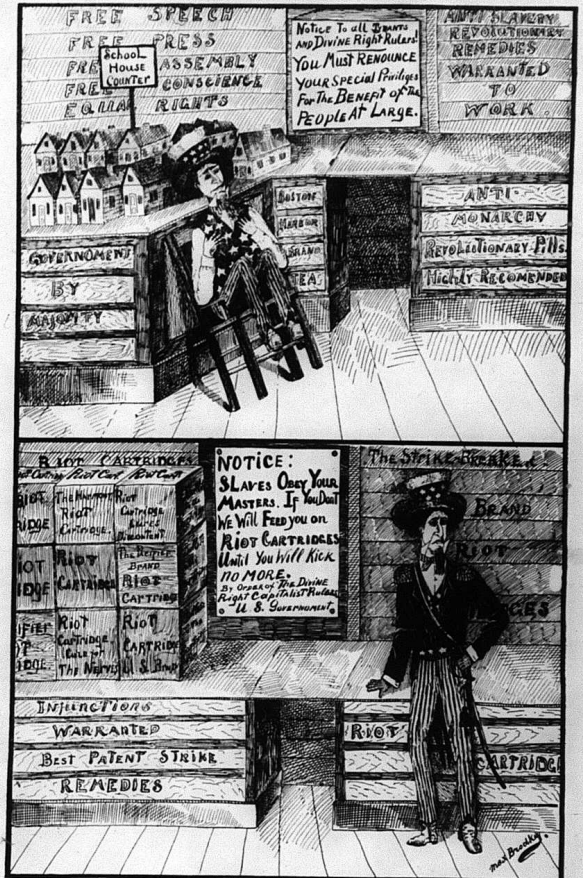 FREE SPEECH
FREE PRESS
FREE ASSEMBLY
FREE CONSCIENCE
EQUAL RIGHTS
School
House
Counter
NOTICE TO all TYRANTS
AND DIVINE RIGHT RULERS!
YOU MUST RENOUNCE
YOUR SPECIAL Privileges
FOR THE BENEFIT OF THE
PEOPLE AT LARGE.
ANTI SLAVERY
REVOLUTIONARY
REMEDIES
WARRANTED
TO
WORK.
GOVERNOMENT
BY
MAJORITY
BOSTON
HARBOR
BRAND
TEA
ANTI-
MONARCHY
REVOLUTIONARY PILLS
HIGHLY RECOMENDED
RIOT CARTRIDGES
Riot Cart
RIOT
RIDGE
Riot
Cartridge.
Riot
Cartridge
Cures
Discontent
RIOT
IDGE
Riot
Cartridge
Brand
Riot
Cartridge
Riot
Cartridge
Cure for
The Nerves
Riot
Cartridge
U S Brand
NOTICE:
SLAVES OBEY YOUR
MASTERS. If You Don't
We Will FEED you on
RIOT CARTRIDGES
Until You Will Kick
no MORE.
By Order of The Divine
Right Capitalist Rulers
U. S. Governoment.
The Strike Breaker.
BRAND
RIOT
GES
INJUNCTIONS
WARRANTED
BEST PATENT STRIKE
REMEDIES
RIOT
CARTRIDG